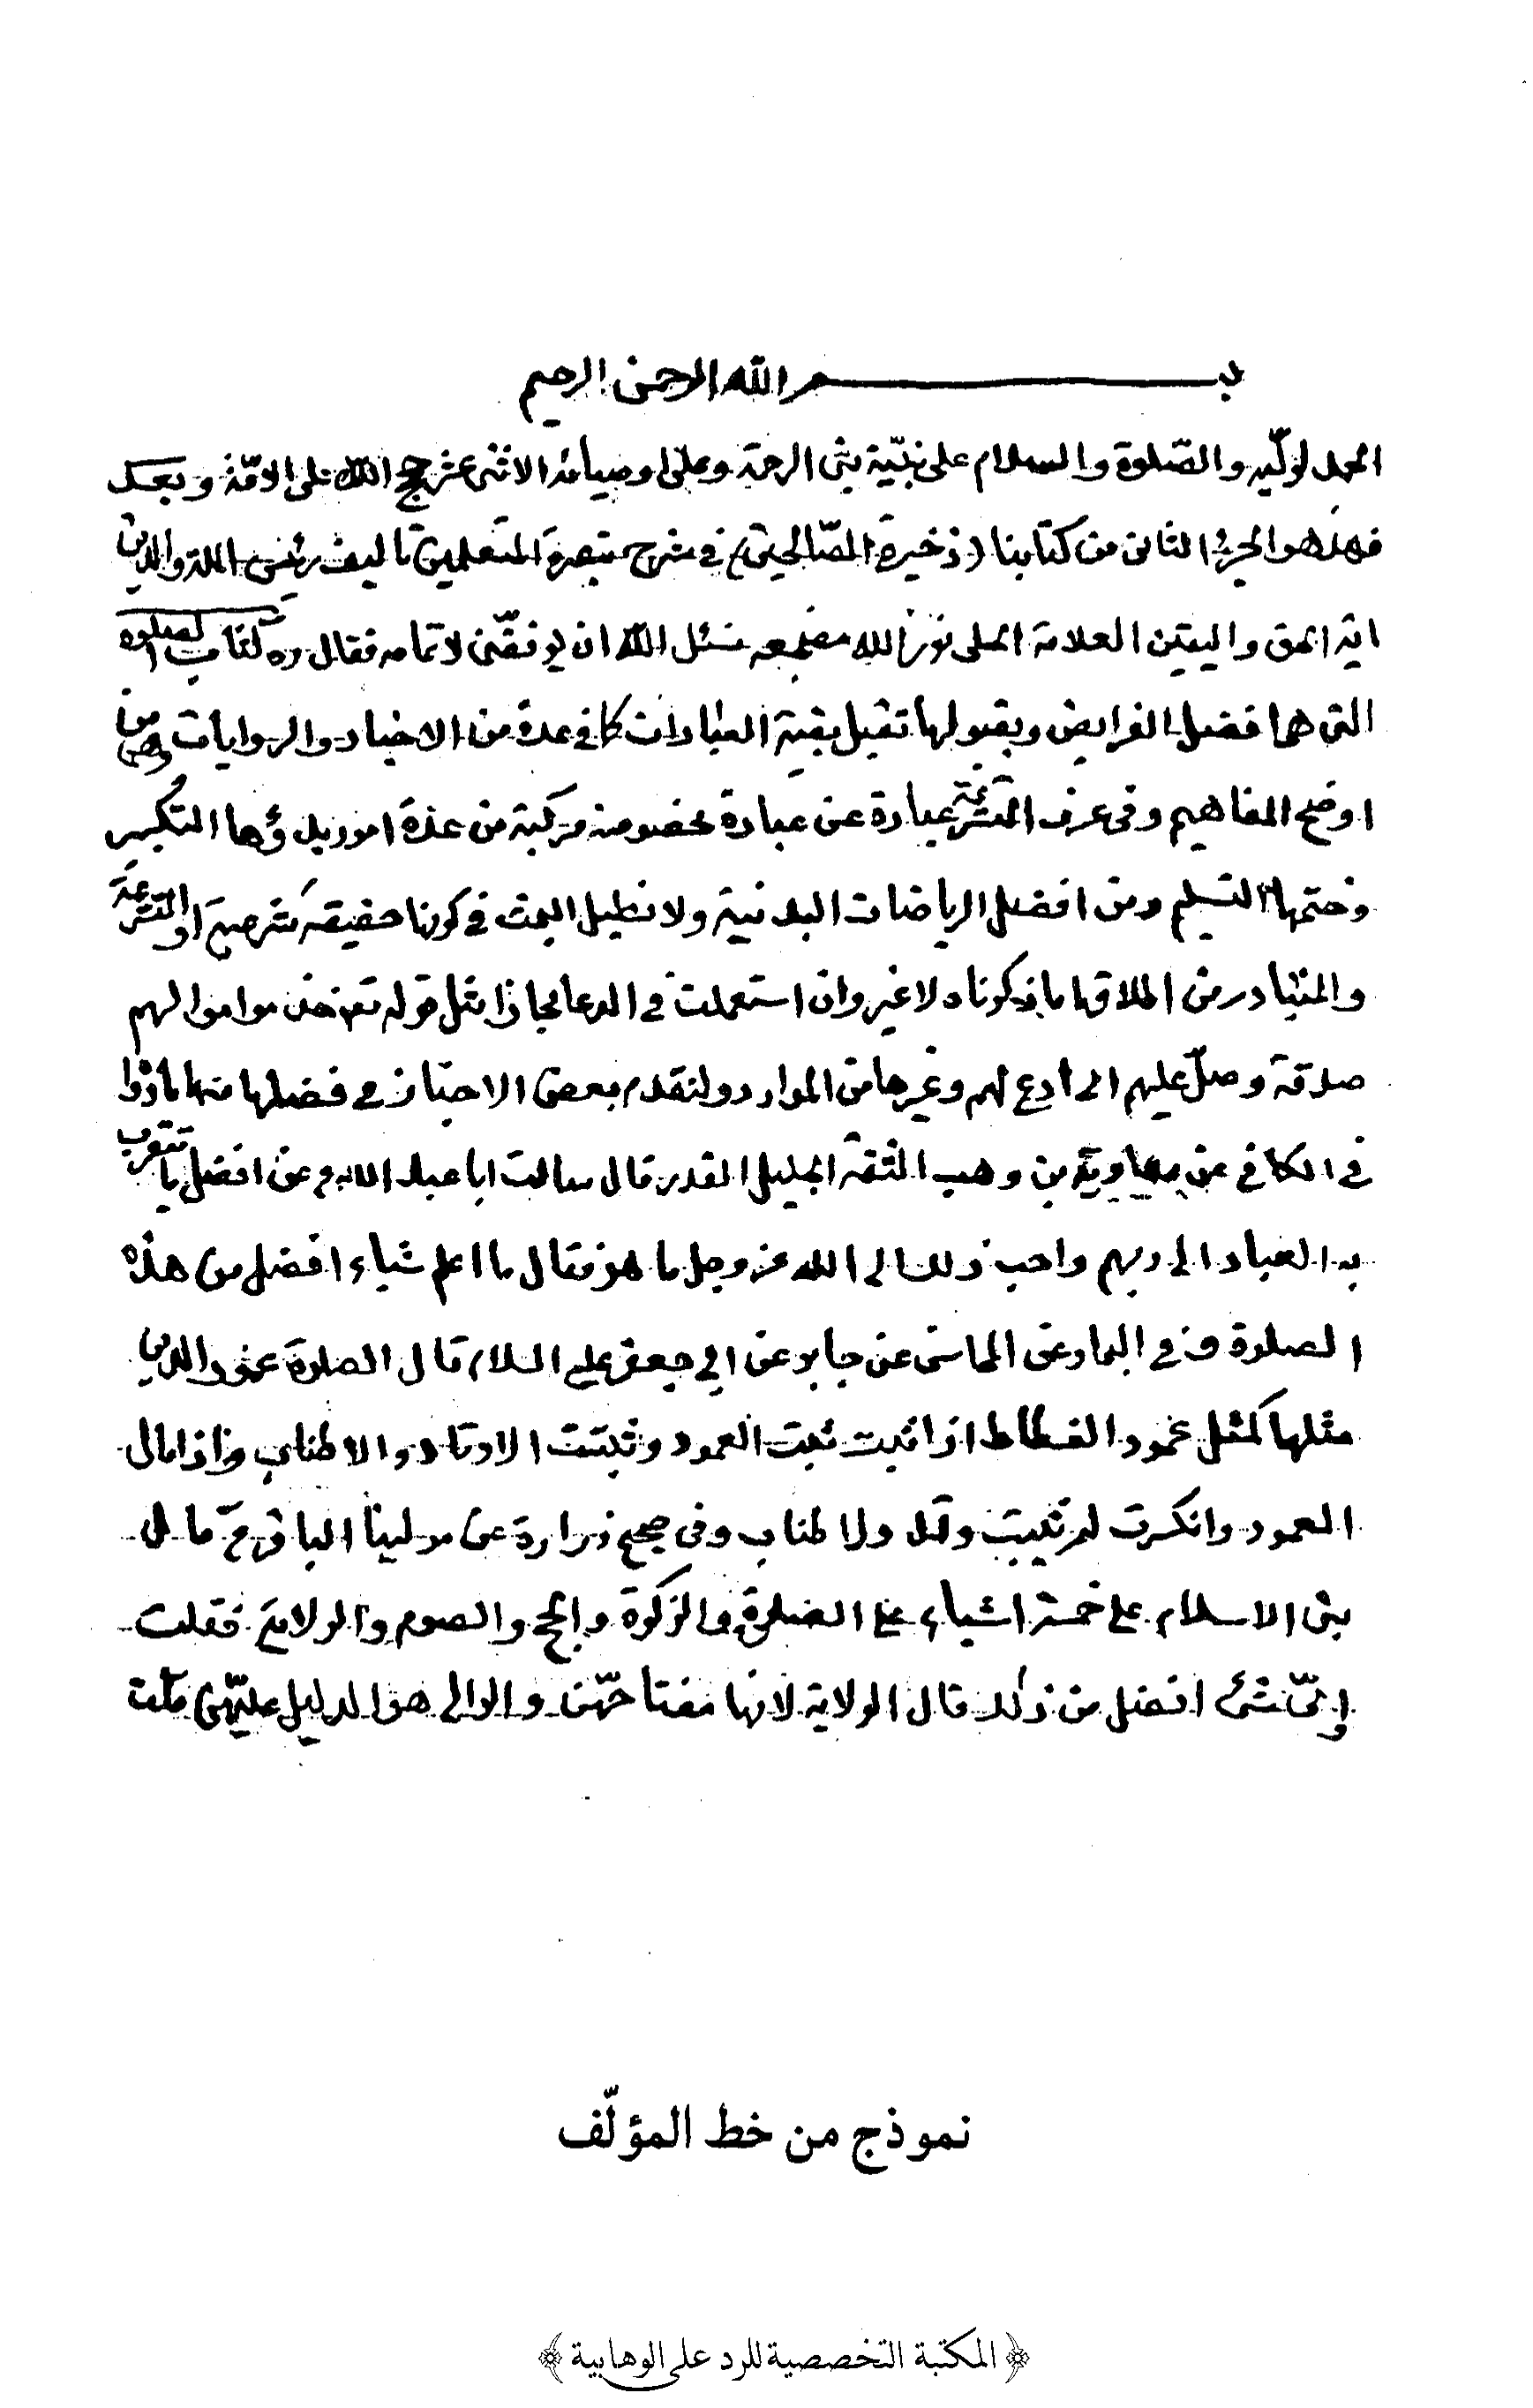 بسم الله الرحمن الرحيم
الحمد لوليّه والصّلوة والسلام على نبيّه نبى الرحمة وعلى اوصيائه الاثنى عشر حجج الله على الامّة وبعد
فهذا هو الجزء الثانى من كتابنا (ذخيرة الصّالحين) في شرح تبصرة المتعلمين تاليف رئيس الملة والدين
اية الحق واليقين العلامة الحلى نور الله مضجعه نسئل الله ان يوفقّنى لاتمامه فقال ره كتاب الصلوة
التى هى افضل الفرايض وبقبولها تقبل بقية العبادات كما في عدة من الاخبار والروايات وهى من
اوضح المفاهيم وفى عرف المتشرعة عبارة عن عبادة مخصوصة مركبة من عدة امور بدؤها التكبير
وختمها التسليم ومن افضل الرياضات البدنية ولا نطيل البحث في كونها حقيقة شرعية او المتشرعة
والمتبادر من اطلاقها ما ذكرناه لا غير وان استعملت في الدعا مجازا مثل قوله تع خذ من اموالهم
صدقة وصلّ عليهم اى ادع لهم وغيرها من الموارد ولنقدم بعض الاخبار في فضلها منها ما
في الكافي عن معاوية بن وهب الثقة الجليل القدر قال سالت ابا عبد الله ع عن افضل ما يتقرب
به العباد الى ربهم واحب ذلك الى الله عز وجل ما هو فقال ما اعلم شياء افضل من هذه
الصلوة وفي البحار عن المحاسن عن جابر عن ابي جعفر عليه السلام قال الصلوة عمود الدين
مثلها كمثل عمود الفسطاط اذا ثبت ثبت العمود وثبتت الاوتاد والاطناب واذا مال
العمود وانكسرت لم يثبت وتد ولا طناب وفى صحيح زرارة عن مولينا الباقر ع قال
بنى الاسلام على خمسة اشياء على الصلوة والزكوة والحج والصوم والولاية فقلت
واىّ شئ افضل من ذلك قال الولاية لانها مفتاحهّن والوالى هو الدليل عليهّن قلت
نموذج من خط المؤلّف
﴿المكتبة التخصصية للرد على الوهابية﴾